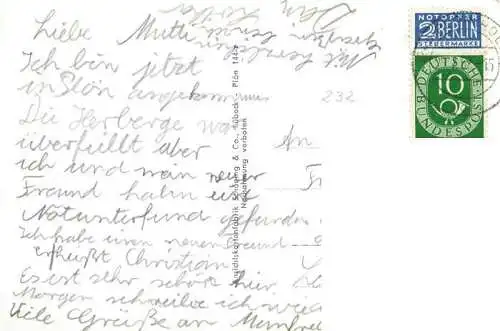 Liebe Mutti
Ich bin jetzt
in Plön angekommen
Die Herberge wa
überfüllt aber
ich und mein neuer
Freund habn eine
Notunterfund gefunden
Ich habe einen neuen Freund
er heißt Christian
Es ist sehr schön hier
Morgen schreibe ich wied
Viele Grüße an Manfred
Mit herzlichen
Dein
232
An
Fr
Ansichtskartenfabrik Schöning & Co., Lübeck
Plön 144
Nachahmung verboten
NOTOPFER
2 BERLIN
STEUERMARKE
DEUTSCHE BUNDESPOST
10